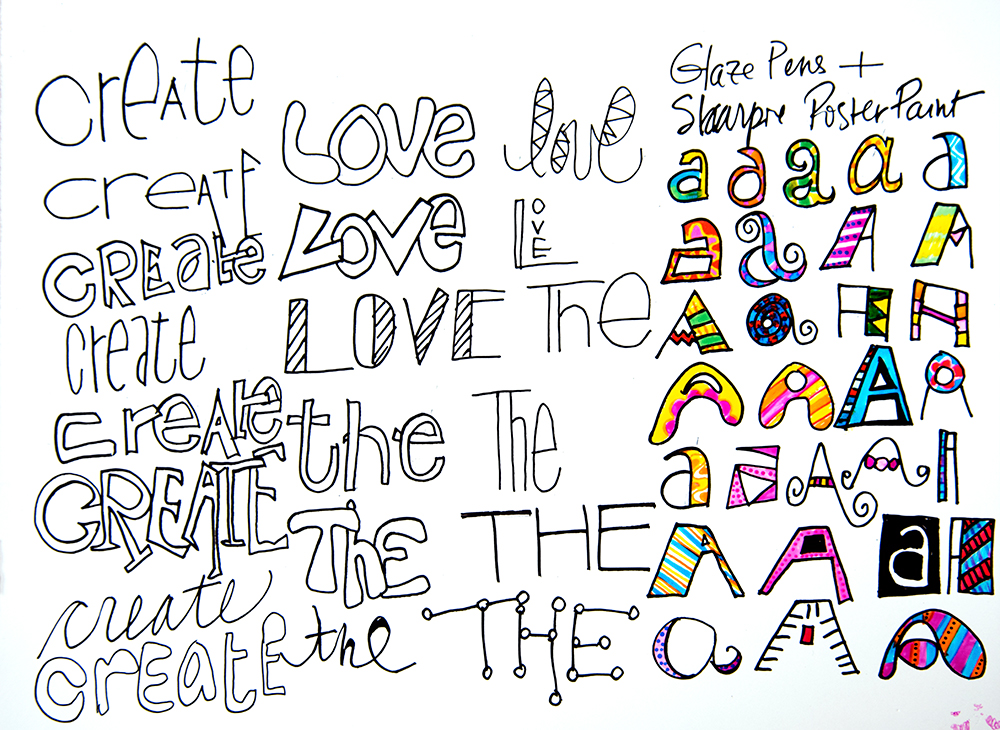 CreAte
creATE
CREAte
create
CreAtE
CREATE
create
CrEatE
LOVe
LOVe
LOVE
the
ThE
the
love
LOVE
The
The
THE
THE
Glaze Pens +
Sharpie Poster Paint
a a a a a
a a A A
A a A A
A A A A
a A A A A
A A a A
a A A